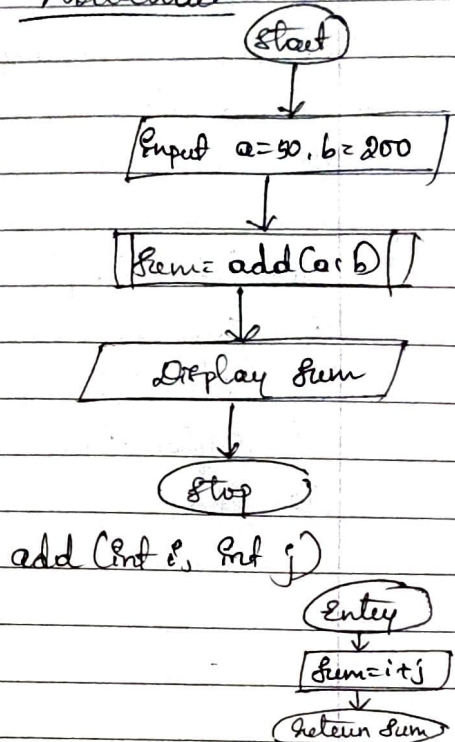 Start
Input a=50, b=200
Sum= add(a, b)
Display Sum
Stop
add (int i, int j)
Entry
Sum=i+j
Return Sum